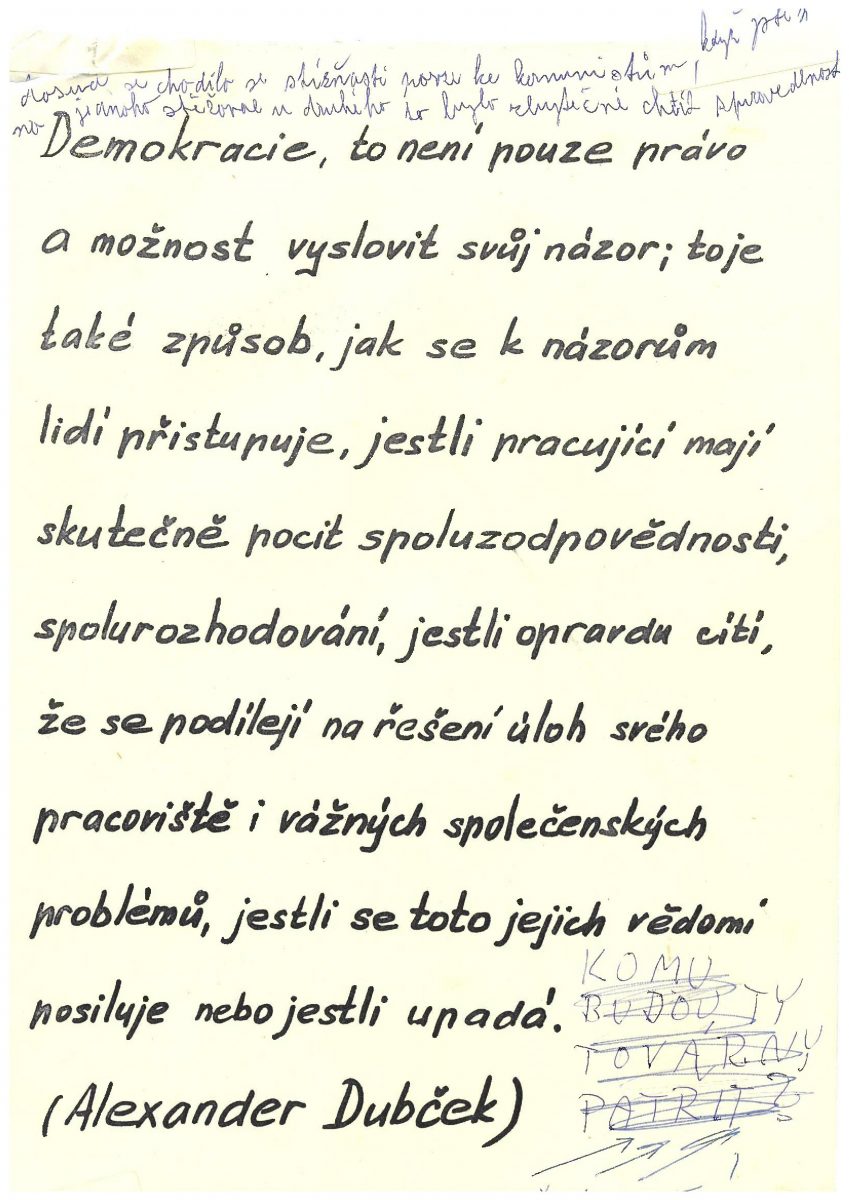 když jste si
dosud se chodilo se stížností pouze ke komunistům,
na jednoho stěžovat u druhého to bylo zbytečné chtít spravedlnost
Demokracie, to není pouze právo
a možnost vyslovit svůj názor; toje
také způsob, jak se k názorům
lidí přistupuje, jestli pracující mají
skutečně pocit spoluzodpovědnosti,
spolurozhodování, jestli opravdu cítí,
že se podílejí na řešení úloh svého
pracoviště i vážných společenských
problémů, jestli se toto jejich vědomí
posiluje nebo jestli upadá.
(Alexander Dubček)
KOMU
BUDOU TY
TOVÁRNY
PATRIT?